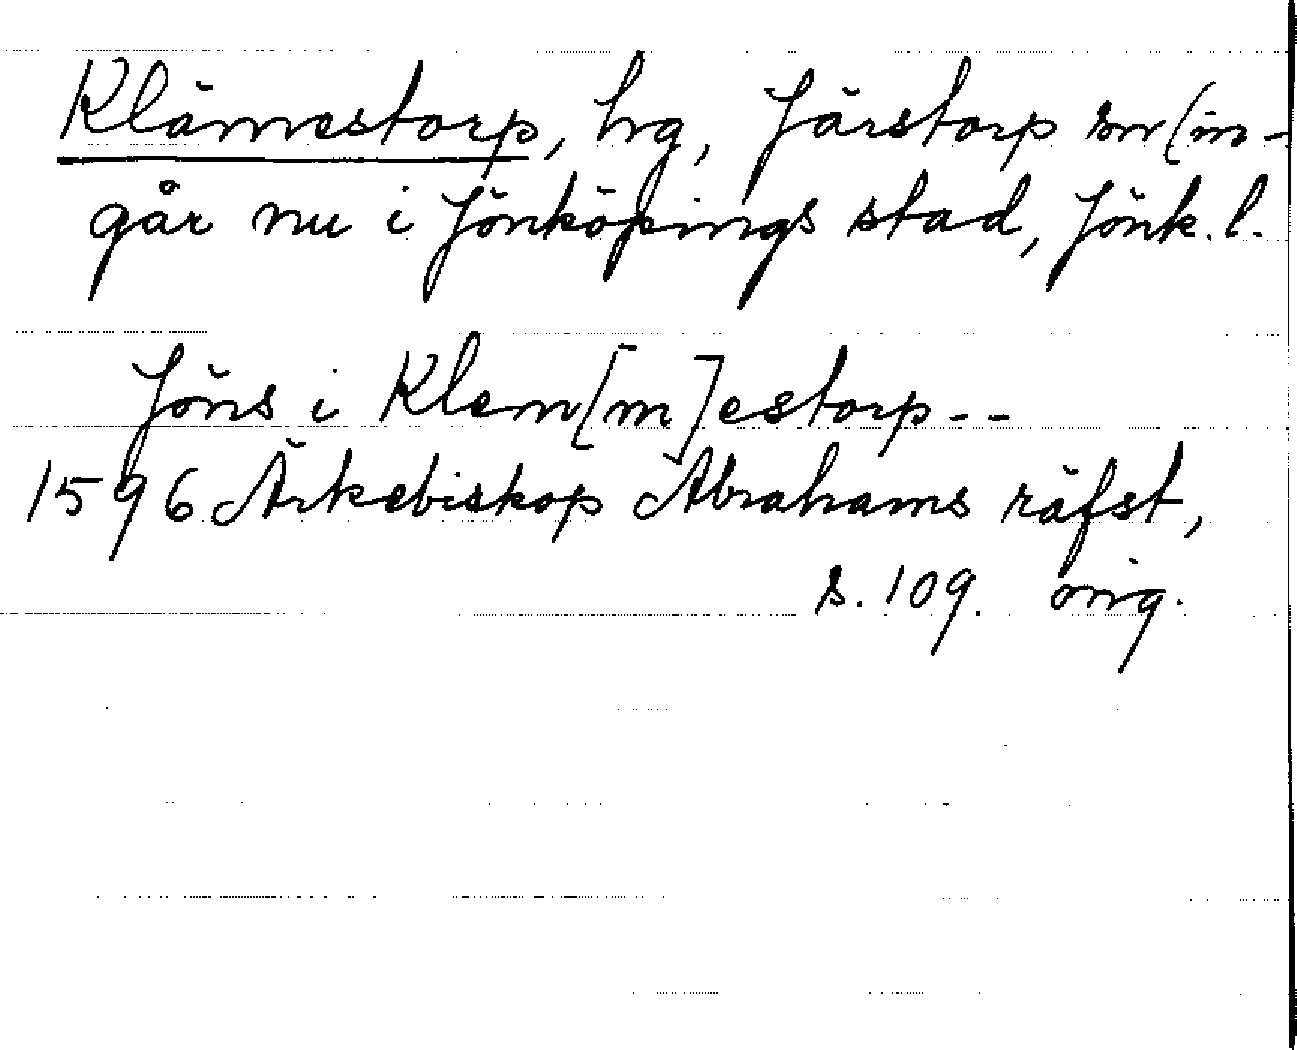 Klämmestorp, hg, Järstorp sn (in-
går nu i Jönköpings stad, Jönk. l.
Jöns i Klem[m]estorp--
1596 Ärkebiskop Abrahams räfst,
s. 109. orig.